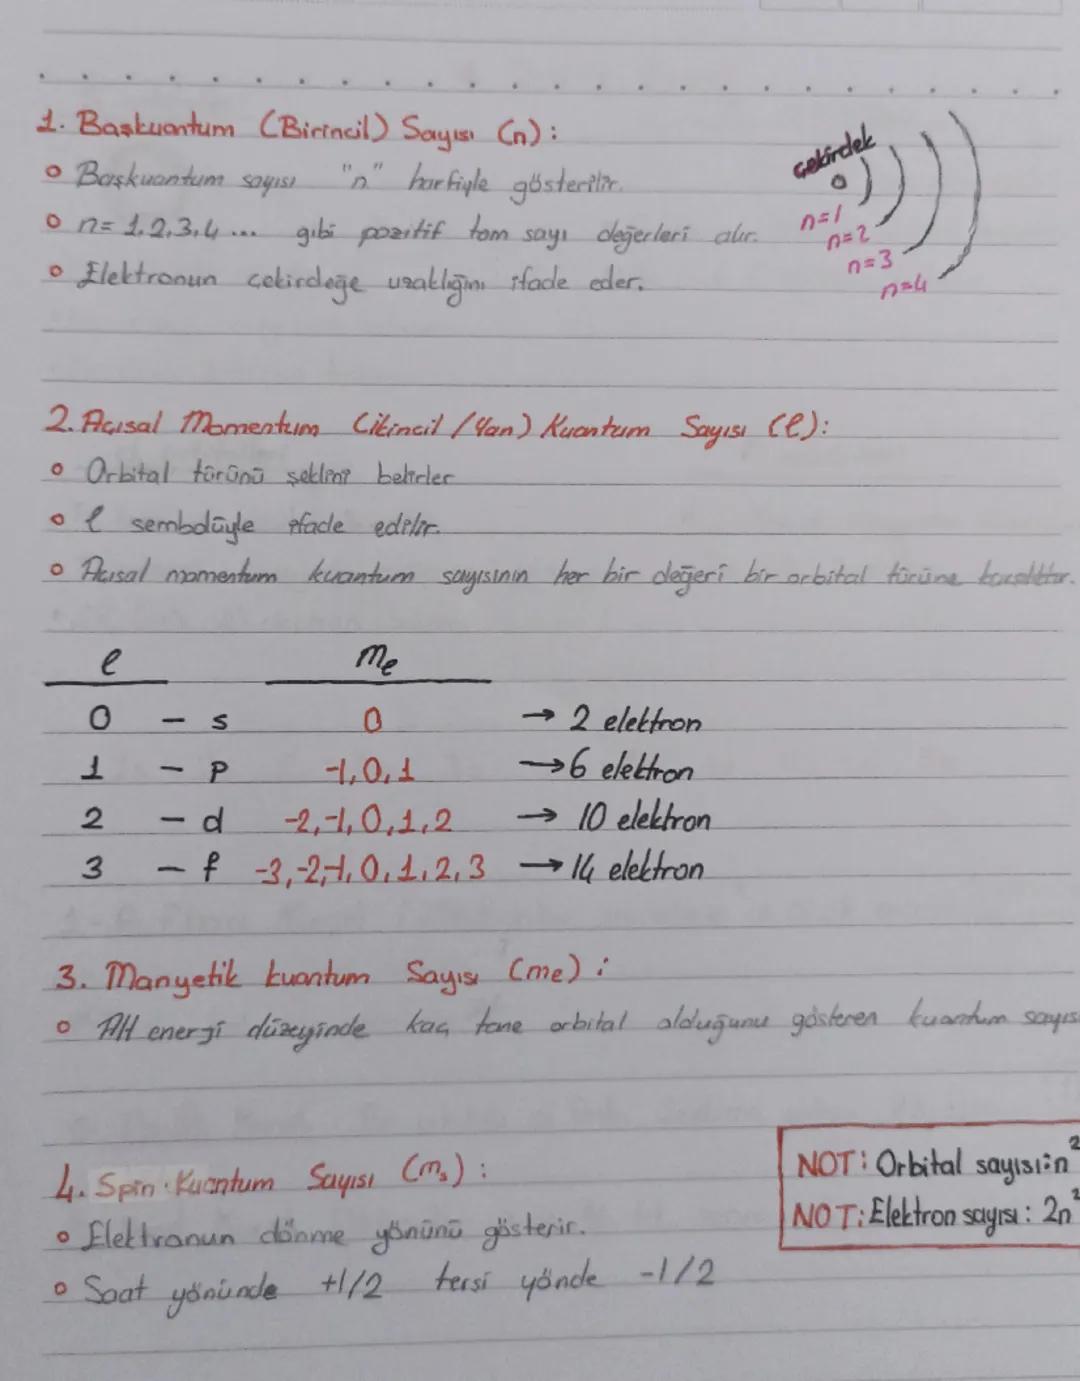 1. Başkuantum (Birincil) Sayısı (n):
o Başkuantum sayısı "n" harfiyle gösterilir.
o n= 1,2,3,4 ... gibi pozitif tam sayı değerleri alır.
o Elektronun çekirdeğe uzaklığını ifade eder.
çekirdek
n=1
n=2
n=3
n=4
2. Açısal Momentum (ikincil / Yan) Kuantum Sayısı (l):
o Orbital türünü şeklini belirler
o l sembolüyle ifade edilir.
o Açısal momentum kuantum sayısının her bir değeri bir orbital türüne karşılıktır.
l me
0 - s 0 → 2 elektron
1 - p -1,0,1 → 6 elektron
2 - d -2,-1,0,1,2 → 10 elektron
3 - f -3,-2,-1,0,1,2,3 → 14 elektron
3. Manyetik kuantum Sayısı (me) :
o Alt enerji düzeyinde kaç tane orbital olduğunu gösteren kuantum sayıs
4. Spin Kuantum Sayısı (ms) :
o Elektronun dönme yönünü gösterir.
o Saat yönünde +1/2 tersi yönde -1/2
NOT: Orbital sayısı: n²
NOT: Elektron sayısı: 2n²